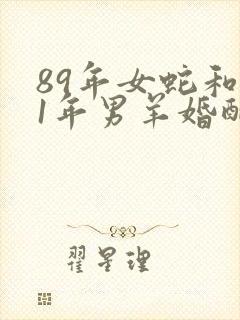 89年女蛇和
1年男羊婚配
翟星理